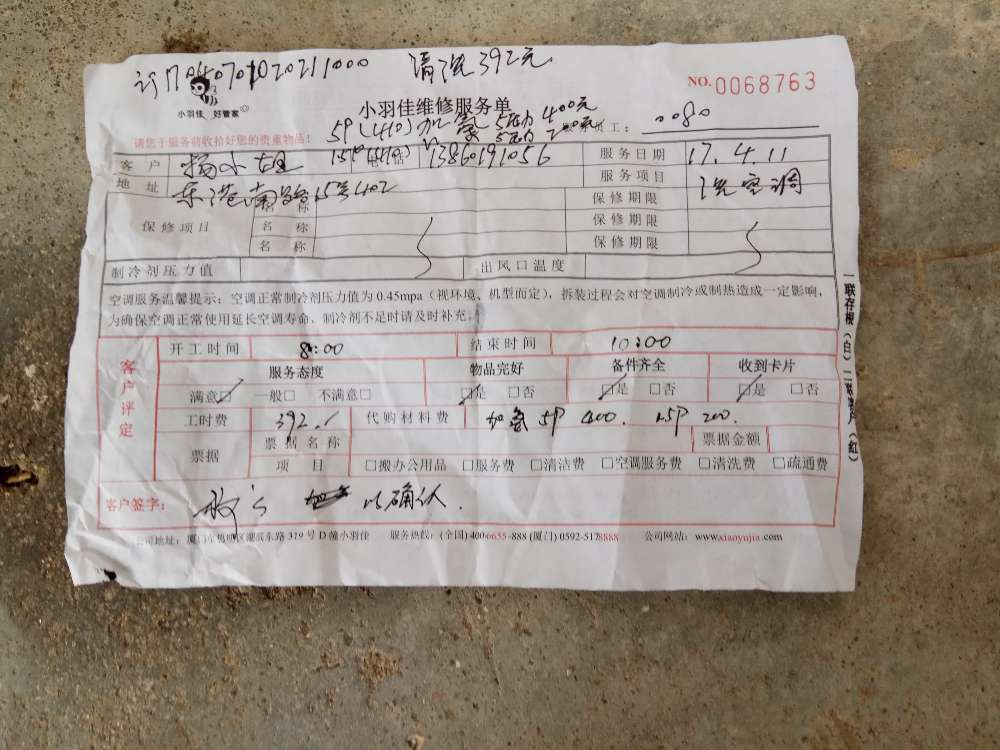 订17040701020211000 清洗392元
NO.0068763
小羽佳 好管家
小羽佳维修服务单
请您于服务前收拾好您的贵重物品!
5P(410)加氨 5压力 400元
工: 0080
1.5P(410) 5压力 200元
客户 杨小姐 13860191056 服务日期 17.4.11
地址 东港南路15号402 服务项目 洗空调
保修项目 名称 保修期限
名称 保修期限
名称 保修期限
制冷剂压力值 出风口温度
空调服务温馨提示:空调正常制冷剂压力值为0.45mpa(视环境、机型而定),拆装过程会对空调制冷或制热造成一定影响,
为确保空调正常使用延长空调寿命,制冷剂不足时请及时补充。
一联存根(白)二联客户(红)
客户评定
开工时间 8:00 结束时间 10:00
服务态度 物品完好 备件齐全 收到卡片
满意□ 一般□ 不满意□ □是 □否 □是 □否 □是 □否
工时费 392. 代购材料费 加氨 5P 400. 1.5P 200.
票据 票据名称 票据金额
项目 □搬办公用品 □服务费 □清洁费 □空调服务费 □清洗费 □疏通费
客户签字: 以确认.
公司地址:厦门市思明区湖滨东路319号D幢小羽佳 服务热线:(全国)4006655-888 (厦门)0592-5178888 公司网站:www.xiaoyujia.com